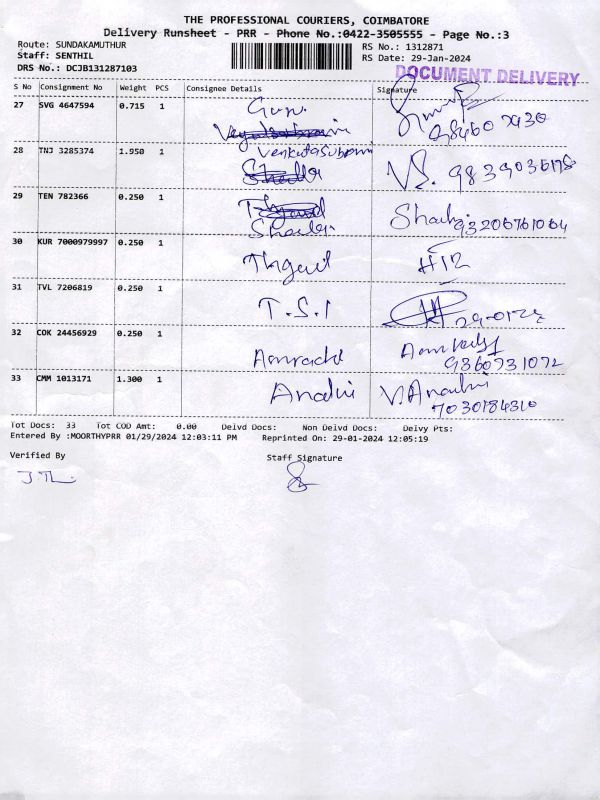 THE PROFESSIONAL COURIERS, COIMBATORE
Delivery Runsheet - PRR - Phone No.:0422-3505555 - Page No.:3
Route: SUNDAKAMUTHUR RS No.: 1312871
Staff: SENTHIL RS Date: 29-Jan-2024
DRS No.: DCJB131287103 DOCUMENT DELIVERY
S No Consignment No Weight PCS Consignee Details Signature
27 SVG 4647594 0.715 1
28 TNJ 3285374 1.950 1 Venkatasubramani VS. 9839036178
29 TEN 782366 0.250 1
Shaila 93206761064
30 KUR 7000979997 0.250 1
31 TVL 7206819 0.250 1 T.S.1
32 COK 24456929 0.250 1
9360731072
33 CMM 1013171 1.300 1
7030184310
Tot Docs: 33 Tot COD Amt: 0.00 Delvd Docs: Non Delvd Docs: Delvy Pts:
Entered By :MOORTHYPRR 01/29/2024 12:03:11 PM Reprinted On: 29-01-2024 12:05:19
Verified By Staff Signature